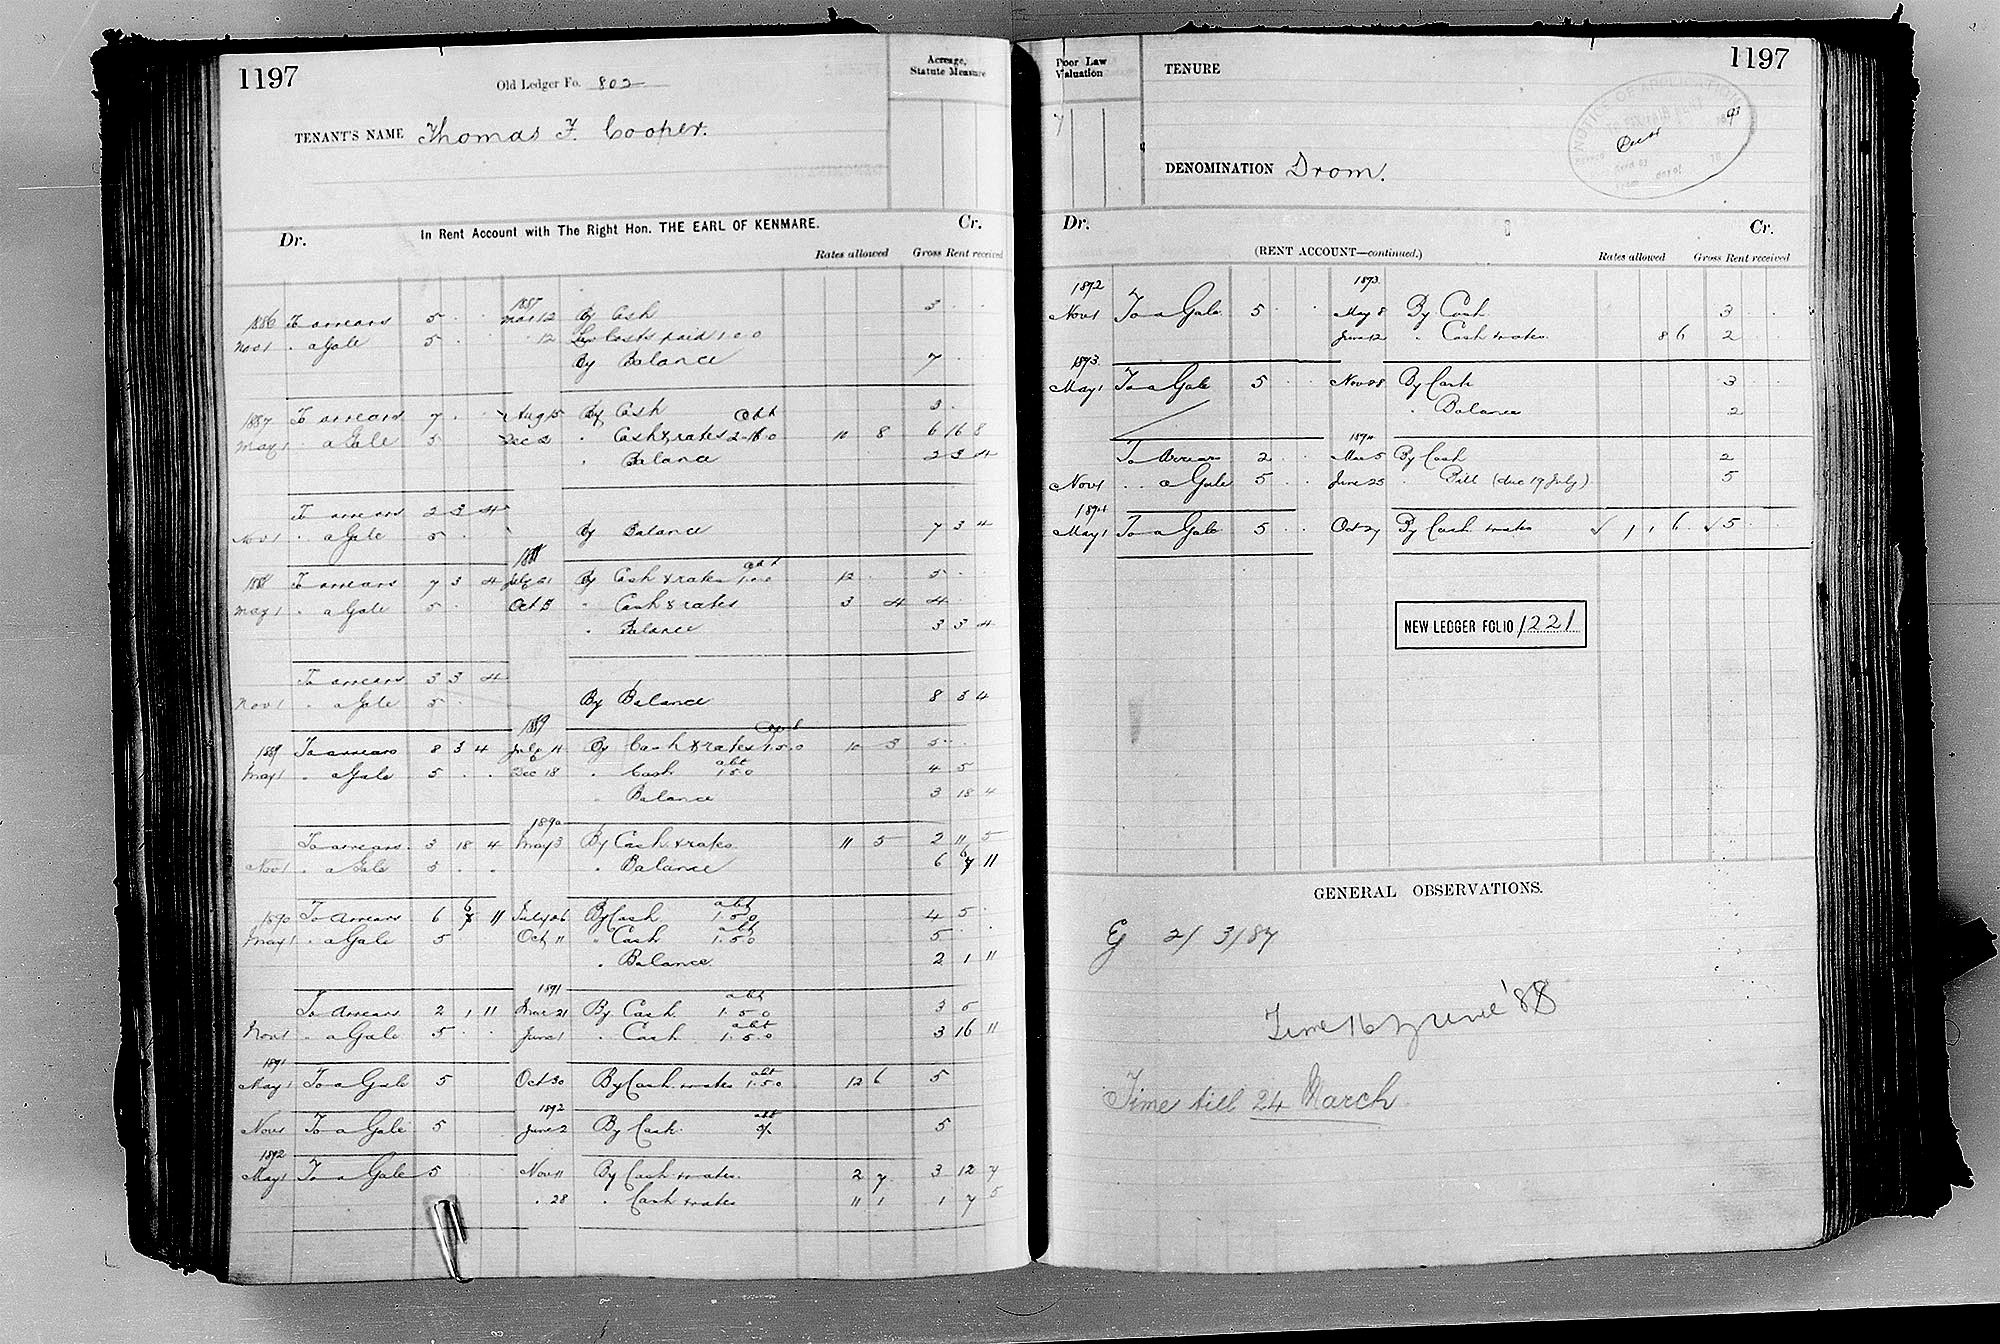 1197
Old Ledger Fo. 802
Acreage, Statute Measure
TENANT'S NAME Thomas F. Cooper.
Dr. In Rent Account with The Right Hon. THE EARL OF KENMARE. Cr.
Rates allowed Gross Rent received
1887
1886 To arrears 5 Mar 12 By Cash 3
Nov 1 " a Gale 5 " 12 Law Costs paid 1.0.0
By Balance 7
1887 To arrears 7 Aug 15 By Cash 3
May 1 " a Gale 5 Dec 2 " Cash & rates 10 8 6 16 8
" Balance 2 3 4
To arrears 2 3 4
Nov 1 " a Gale 5 By Balance 7 3 4
1888
1888 To arrears 7 3 4 July 21 By Cash & rates 1.0.0 12 5
May 1 " a Gale 5 Oct 5 " Cash & rates 3 4 4
" Balance 3 3 4
To arrears 3 3 4
Nov 1 " a Gale 5 By Balance 8 3 4
1889
1889 To arrears 8 3 4 July 11 By Cash & rates 1.5.0 10 3 5
May 1 " a Gale 5 Dec 18 " Cash abt 1.5.0 4 5
" Balance 3 18 4
1890
To arrears 3 18 4 May 3 By Cash & rates 11 5 2 11 5
Nov 1 " a Gale 5 " Balance 6 6 11
1890 To arrears 6 6 11 July 26 By Cash abt 1.5.0 4 5
May 1 " a Gale 5 Oct 11 " Cash abt 1.5.0 5
" Balance 2 1 11
1891
To arrears 2 1 11 Mar 21 By Cash abt 1.5.0 3 5
Nov 1 " a Gale 5 June 1 " Cash abt 1.5.0 3 16 11
1891
May 1 To a Gale 5 Oct 30 By Cash & rates abt 1.5.0 12 6 5
1892
Nov 1 To a Gale 5 June 2 By Cash abt 5
1892
May 1 To a Gale 5 Nov 11 By Cash & rates 2 7 3 12 7
" 28 " Cash & rates 11 1 1 7 5
Poor Law Valuation
TENURE
1197
NOTICE OF APPLICATION
DENOMINATION Drom.
Dr. Cr.
(RENT ACCOUNT—continued.) Rates allowed Gross Rent received
1892 1893
Nov 1 To a Gale 5 May 8 By Cash 3
June 12 " Cash & rates 8 6 2
1893
May 1 To a Gale 5 Nov 28 By Cash 3
" Balance 2
1894
To Arrears 2 Mar 5 By Cash 2
Nov 1 " a Gale 5 June 25 " Bill (due 19 July) 5
1894
May 1 To a Gale 5 Oct 27 By Cash & rates √ 1 1 6 √ 5
NEW LEDGER FOLIO 1221
GENERAL OBSERVATIONS.
21/3/87
Time 16 June '88
Time till 24 March